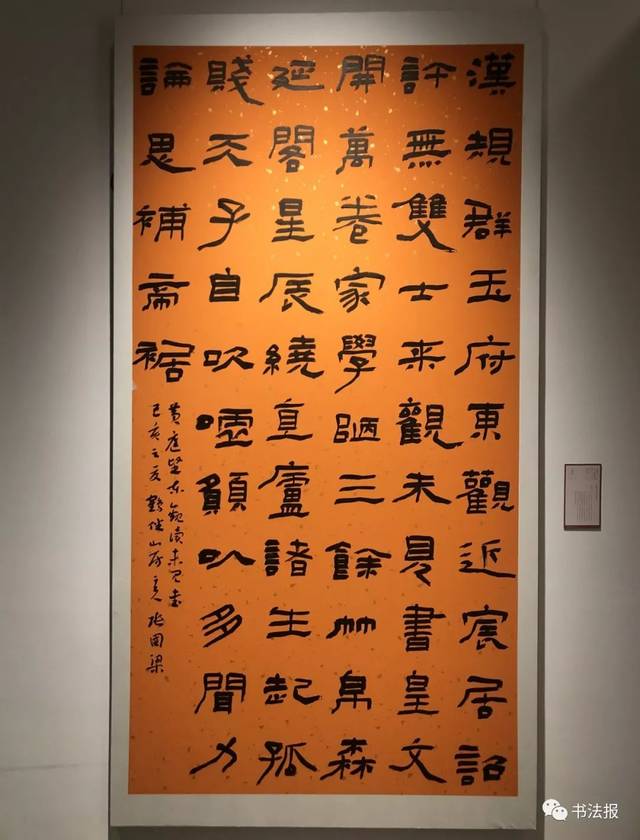 漢規群玉府東觀近宸居詔
許無雙士来觀未見書皇文
開萬卷家學陋三餘竹帛森
延閣星辰繞直廬諸生起孤
賤天子自吹噓願以多聞力
論思補帝裾
黄庭堅東觀讀未見書
己亥之夏山房張国梁
书法报